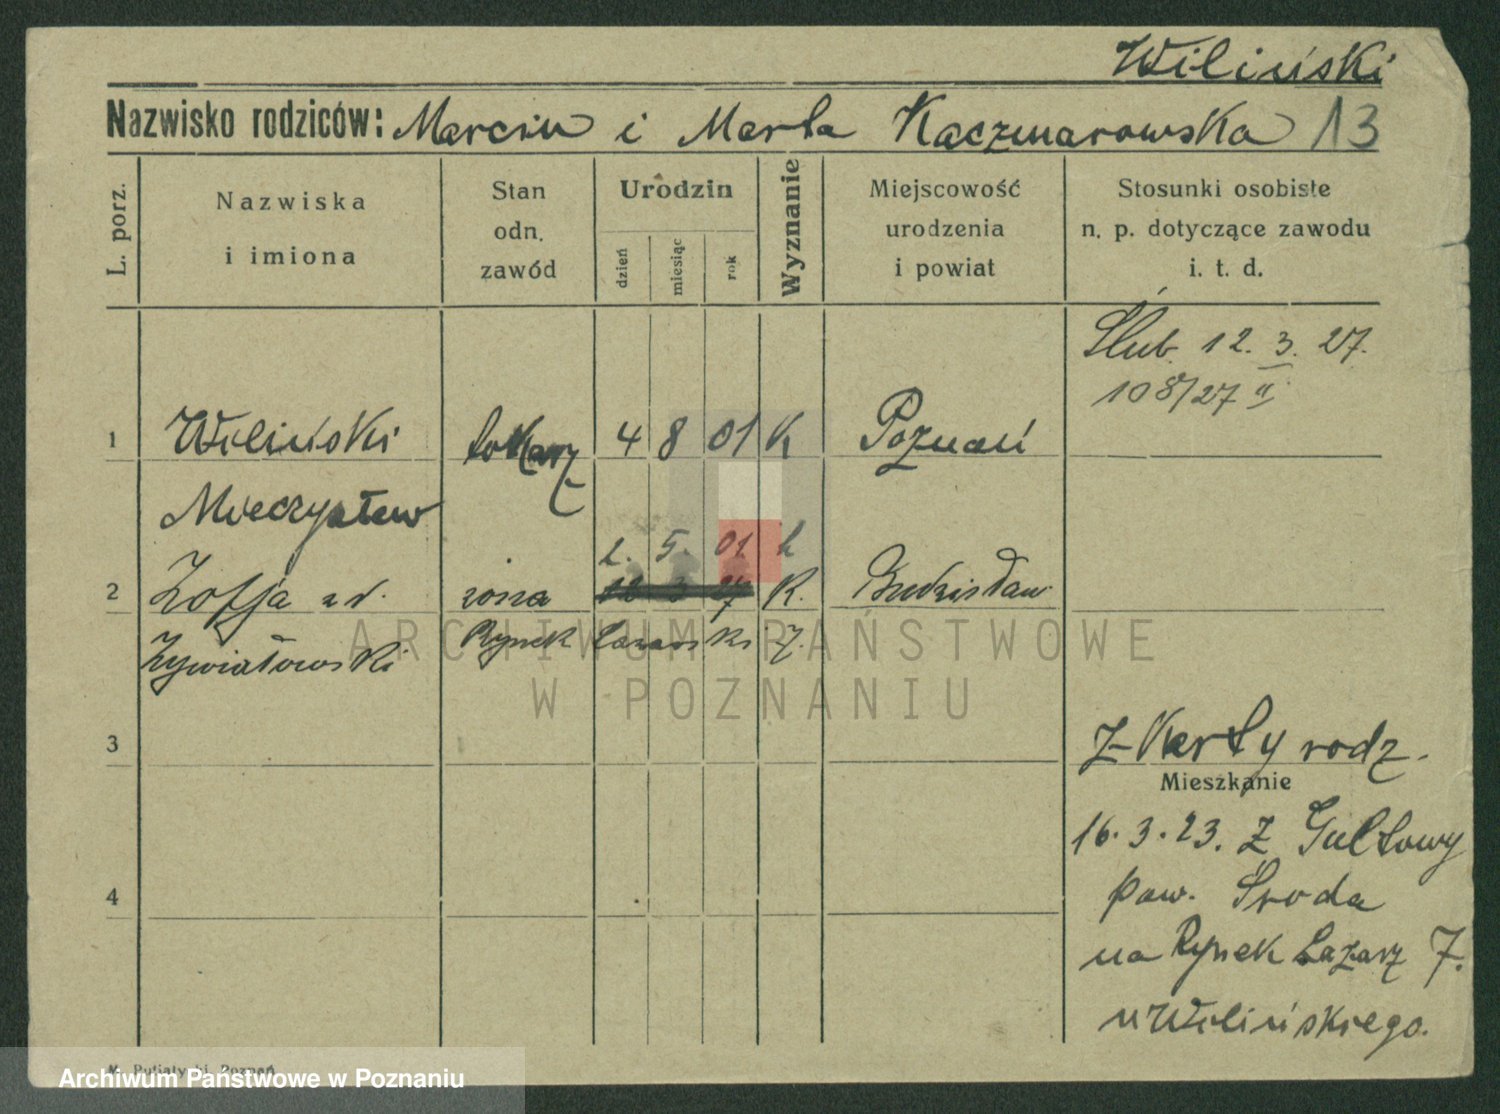 Wiliński
Nazwisko rodziców: Marcin i Marta Kaczmarowska 13
L. porz.
Nazwiska
i imiona
Stan
odn.
zawód
Urodzin
dzień
miesiąc
rok
Wyznanie
Miejscowość
urodzenia
i powiat
Stosunki osobiste
n. p. dotyczące zawodu
i. t. d.
Ślub 12. 3. 27.
108/27 II
1 Wiliński tokarz 4 8 01 K Poznań
Mieczysław
2. 5. 01
2 Zofja żona 12 3 27 K. Budzisław
Żywiałowski Rynek Łazarski 7.
3
Z Karty rodz.
Mieszkanie
16.3.23. z Gułtowy
4
pow. Środa
na Rynek Łazarz 7.
u Wilińskiego.
ARCHIWUM PAŃSTWOWE
W POZNANIU
K. Putiatycki, Poznań
Archiwum Państwowe w Poznaniu